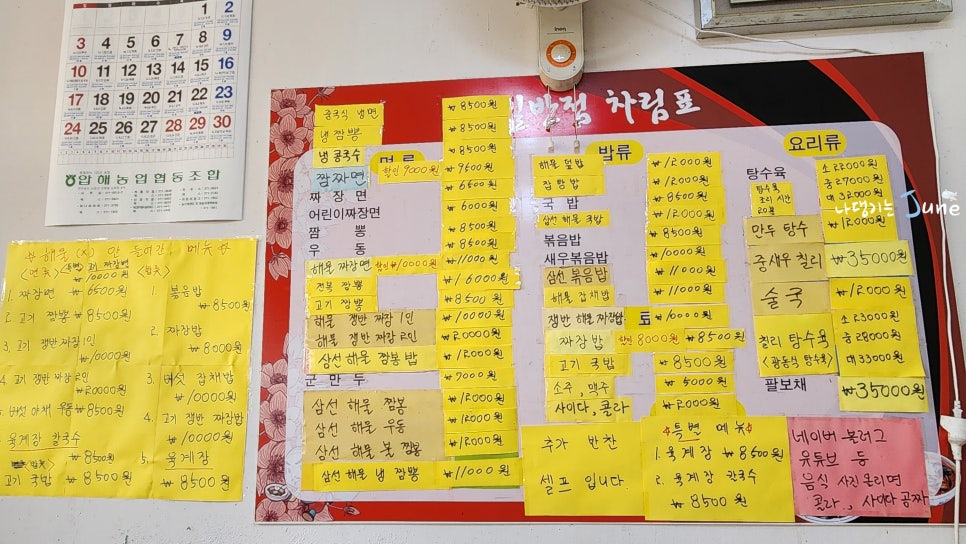 1 2
3 4 5 6 7 8 9
10 11 12 13 14 15 16
17 18 19 20 21 22 23
24 25 26 27 28 29 30
압해농업협동조합
* 해물 (X) 안 들어간, 메뉴 *
<면류> <특별> 고기 짜장면 <밥류>
₩10000원
1. 짜장면 ₩6500원
2. 고기 짬뽕 ₩8500원
3. 고기 쟁반 짜장 1인
₩10000원
4. 고기 쟁반 짜장 2인
₩20000원
5. 버섯 야채 우동 ₩8500원
육계장 칼국수
₩8500원
고기 국밥 ₩8500원
1. 볶음밥
₩8500원
2. 짜장밥
₩8000원
3. 버섯 잡채밥
₩10000원
4. 고기 쟁반 짜장밥
₩10000원
5. 육계장
₩8500원
차림표
면류
콩국식 냉면 ₩8500원
냉짬뽕 ₩8500원
냉콩국수 ₩8500원
짬짜면 할인 9000원 ₩9600원
짜장면 ₩6600원
어린이짜장면 ₩6000원
짬뽕 ₩8500원
우동 ₩8500원
해물 짜장면 할인 ₩10000원 ₩11000원
전복 짬뽕 ₩16000원
고기 짬뽕 ₩8500원
해물 쟁반 짜장 1인 ₩10000원
해물 쟁반 짜장 2인 ₩20000원
삼선 해물 짬뽕밥 ₩12000원
군만두 ₩7000원
삼선 해물 짜장 ₩12000원
삼선 해물 우동 ₩12000원
삼선 해물 볶 짬뽕 ₩12000원
삼선 해물 냉 짬뽕 ₩11000원
밥류
해물 덮밥 ₩12000원
잡탕밥 ₩12000원
국밥 ₩8500원
삼선 해물 국밥 ₩12000원
볶음밥 ₩8500원
새우볶음밥 ₩10000원
삼선 볶음밥 ₩11000원
해물 잡채밥 ₩11000원
쟁반 해물 짜장밥 ₩12000원
짜장밥 할인 8000원 ₩8500원
고기 국밥 ₩8500원
소주, 맥주 ₩5000원
사이다, 콜라 ₩2000원
요리류
탕수육 소 22000원
탕수육 조리 시간 20분 중 27000원
대 32000원
만두 탕수 ₩12000원
중새우 칠리 ₩35000원
술국 ₩12000원
칠리 탕수육 소 23000원
<광동식 탕수육> 중 28000원
대 33000원
팔보채 ₩35000원
추가 반찬
셀프 입니다
*특별 메뉴*
1. 육계장 ₩8500원
2. 육계장 칼국수
₩8500원
네이버 블러그
유튜브 등
음식 사진 올리면
콜라., 사이다 공짜
나댕기는 June